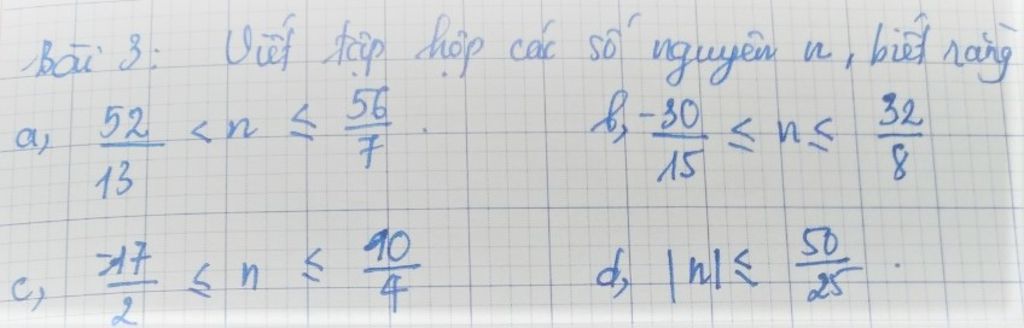 Bài 3: Viết tập hợp các số nguyên n, biết rằng
a, 52/13 < n ≤ 56/7. b, -30/15 ≤ n ≤ 32/8
c, -17/2 ≤ n ≤ 10/4 d, |n| ≤ 50/25.